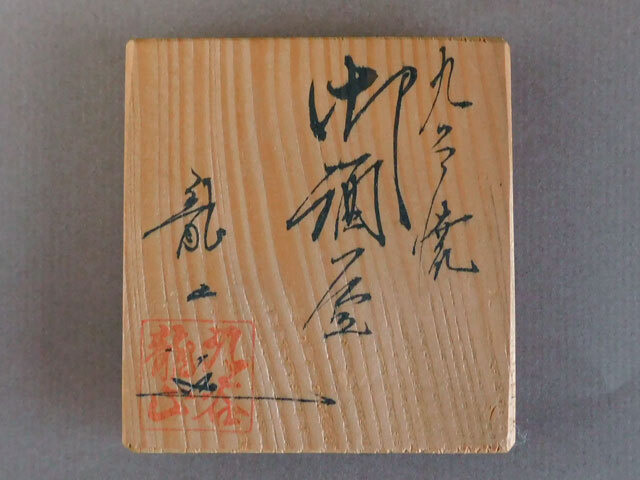 九谷焼
御酒盃
龍山造
九谷龍山